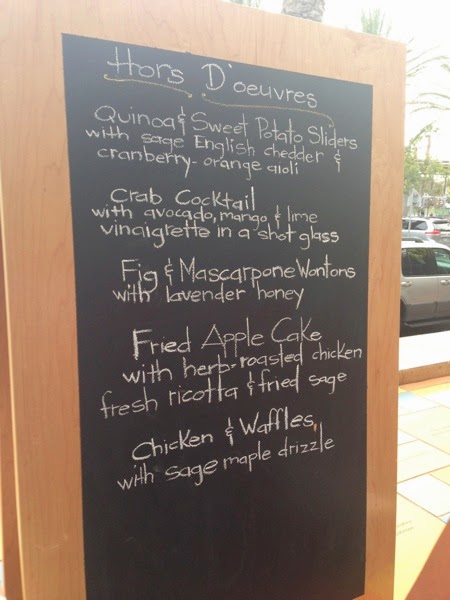 Hors D'oeuvres
Quinoa & Sweet Potato Sliders
with sage English chedder &
cranberry-orange aioli
Crab Cocktail
with avocado, mango, & lime
vinaigrette in a shot glass
Fig & Mascarpone Wontons
with lavender honey
Fried Apple Cake
with herb-roasted chicken
fresh ricotta & fried sage
Chicken & Waffles
with sage maple drizzle